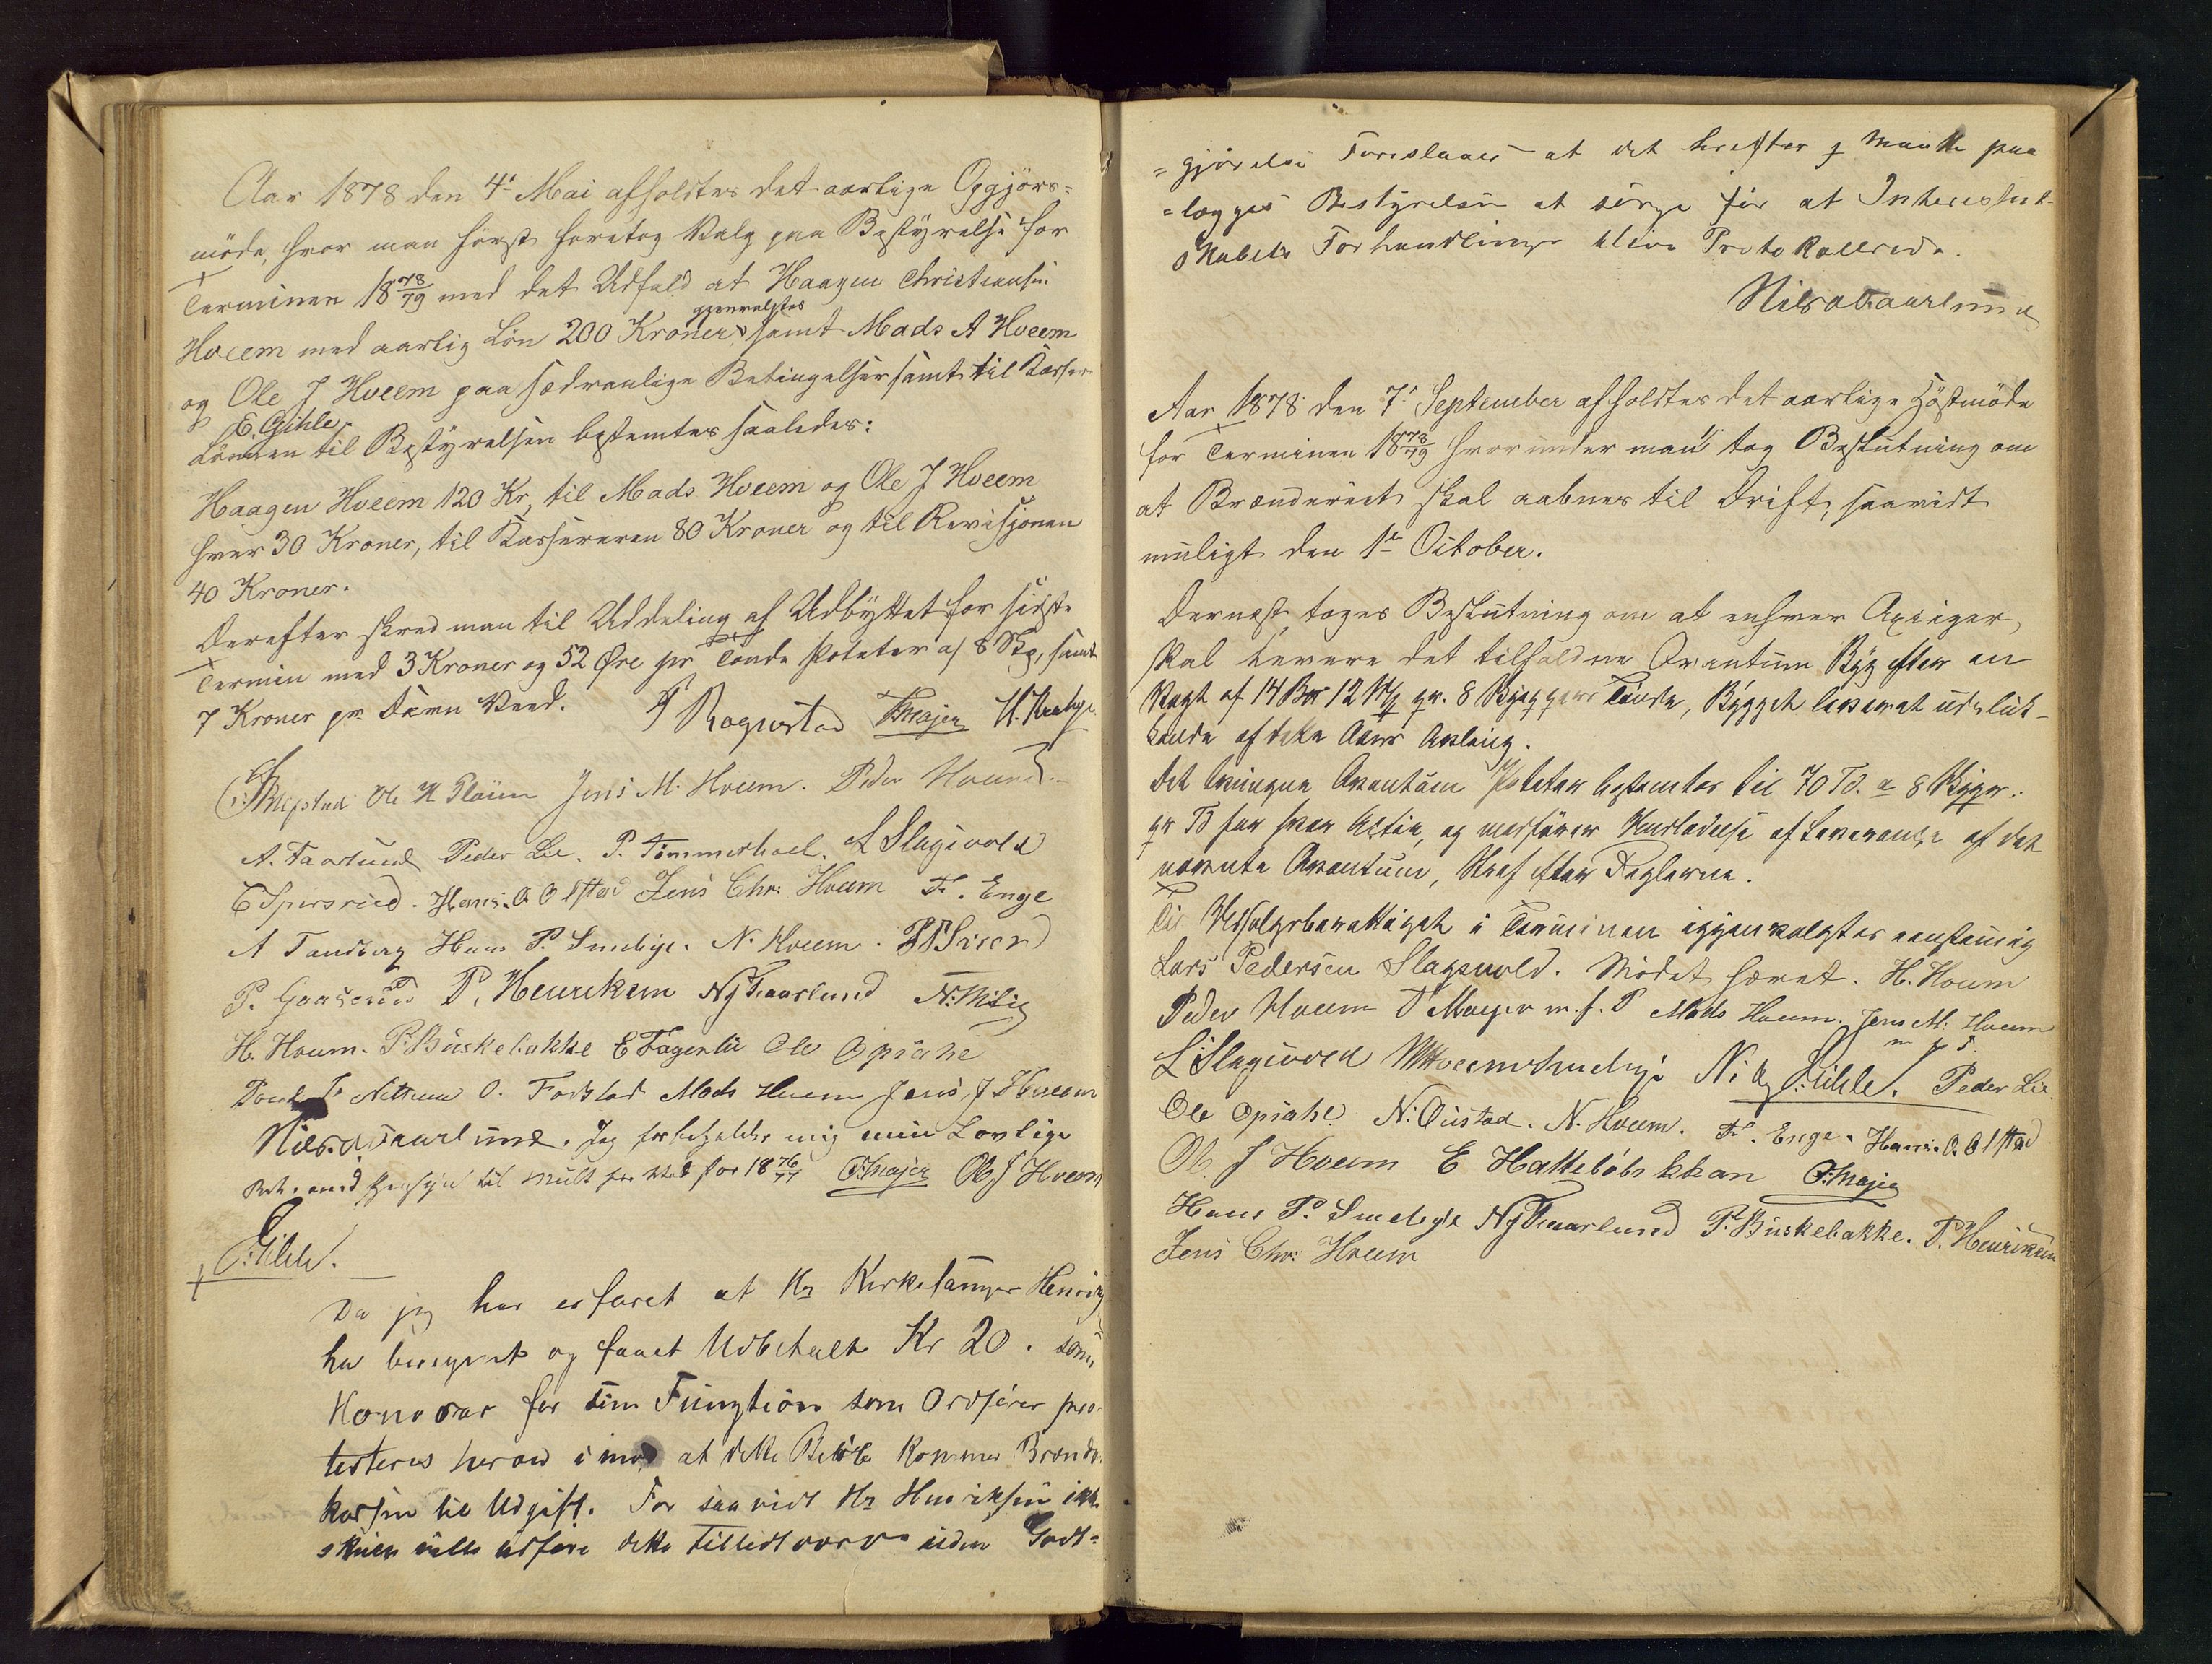 Aar 1878 den 4de Mai afholdtes det aarlige Opgjørs=
møde, hvor man først foretog Valg paa Bestyrelse for
Terminen 18 78/79 med det Udfald at Haagen Christiansen
Hveem med aarlig Løn 200 Kroner gjenvalgtes samt Mads A Hveem
og Ole J Hveem paa sædvanlige Betingelser samt til Kasser
E. Gihle.
Lønnen til Bestyrelsen bestemtes saaledes:
Haagen Hveem 120 Kr, til Mads Hveem og Ole J Hveem
hver 30 Kroner, til Kassereren 80 Kroner og til Revisjonen
40 Kroner.
Derefter skred man til Uddeling af Udbyttet for sidste
Termin med 3 Kroner og 52 Øre pr Tønde Poteter af 8 Skp, samt
7 Kroner pr. Favn Veed. Rognstad OMajer
Ole H Pløien Jens M. Hveem. Peder Hveem
A. Faarlund Peder Lie. P. Tømmerhoel. L Slagsvold
Hans. O. Olstad Jens Chr: Hveem F. Enge
A Tandberg Hans P. Smebye. N. Hveem.
P. Henriksen NjFaarlund
H. Hveem. P. Buskebakke E Fagerlie Ole Opsahl
O. Fodstad Mads Hveem Jens J Hveem
Nils O Faarlund. Jeg forbeholder mig min Lovlige
Ret med Hensyn til Mult for Ved for 18 76/77 O:Majer Ole J Hveem
E:Gihle.
Da jeg har erfaret at Hr Kirkesanger Henrik
ha beregnet og faaet Udbetalt Kr 20. som
Honorar for sin Fungtion som Ordfører pro-
testeres herved imod at dette Beløb kommer Brænde.
kassen til Udgift. For saavidt Hr Henriksen ikke
skulle ville udføre dette Tillidsverv uden Godt=
=gjørelse Foreslaaes at det herefter maatte paa
=lægges Bestyrelsen at sørge for at Interessent-
skabets Forhandlinger blive Protokollerede.
Nils O Faarlund
Aar 1878 den 7de September afholdtes det aarlige Høstmøde
for Terminen 18 78/79 hvorunder man tog Beslutning om
at Brænderiet skal aabnes til Drift, saavidt
muligt den 1ste October.
Dernæst toges Beslutning om at enhver Axieier,
skal levere det tilfaldne Qvantum Byg efter en
Vægt af 14 Bpd 12 Mk pr. 8 Skjæppers Tønde, Bygget leveret udeluk-
kende af dette Aars Avling.
Det tvungne Qvantum Poteter bestemtes til 70 Td. a 8 Skjpr.
pr Td for hver Actie, og medfører Undladelse af Leverance af det
nævnte Qvantum, Straf efter Reglerne.
Til Udsalgsberettiget i Terminen igjenvalgtes eenstemmig
Lars Pedersen Slagsvold. Mødet hævet. H. Hveem
Peder Hveem O Majer m. f. P Mads Hveem. Jens M. Hveem
m f P.
L Slagsvold E:Gihle. Peder Lie.
Ole Opsahl N: Oustad. N. Hveem. F. Enge. Hans. O. Olstad
Ole J Hveem E Hattebøls bkkan O:Majer
Hans P. Smebye NjFaarlund P. Buskebakke. P. Henriksen
Jens Chr: Hveem